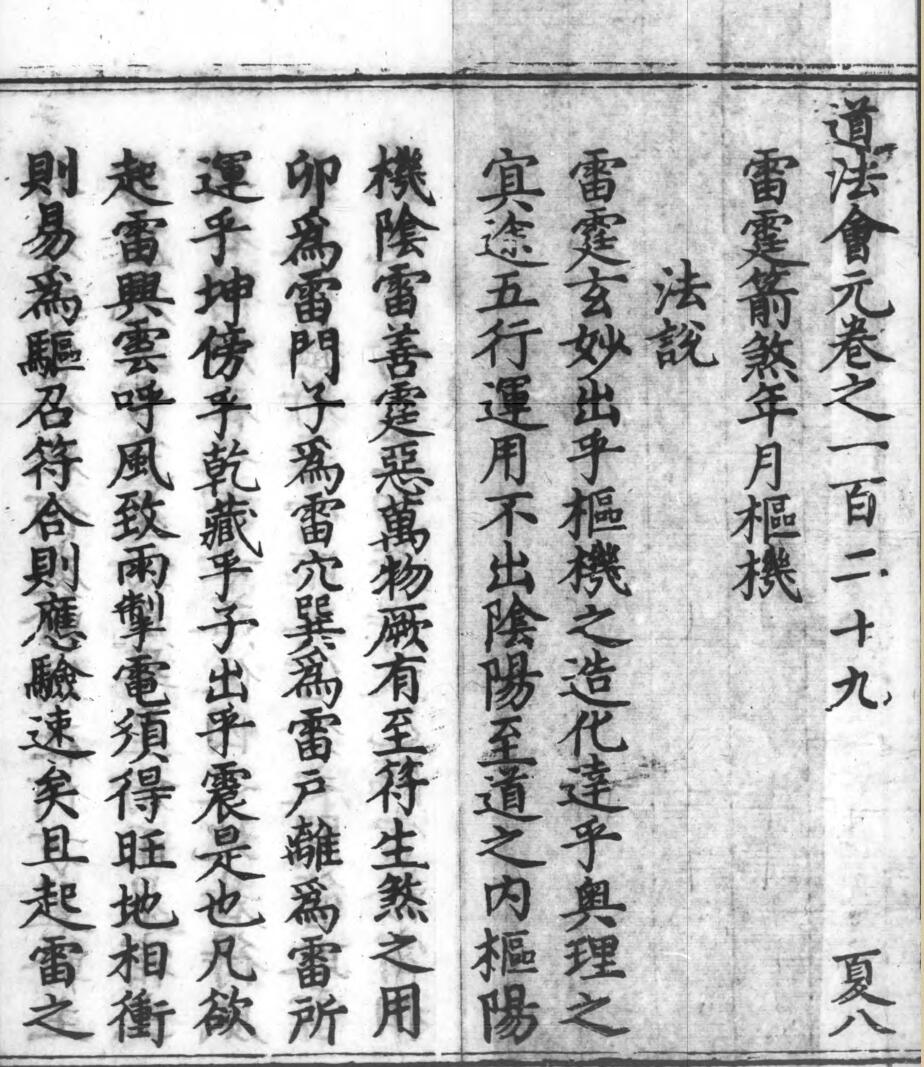 道法會元卷之一百二十九 夏八
雷霆箭煞年月樞機
法說
雷霆玄妙出乎樞機之造化達乎奧理之
冥途五行運用不出陰陽至道之內樞陽
機陰雷善霆惡萬物厥有至符生煞之用
卯為雷門子為雷穴巽為雷戶離為雷所
運乎坤傍乎乾藏乎子出乎震是也凡欲
起雷興雲呼風致雨掣電須得旺地相衝
則易為驅召符合則應驗速矣且起雷之